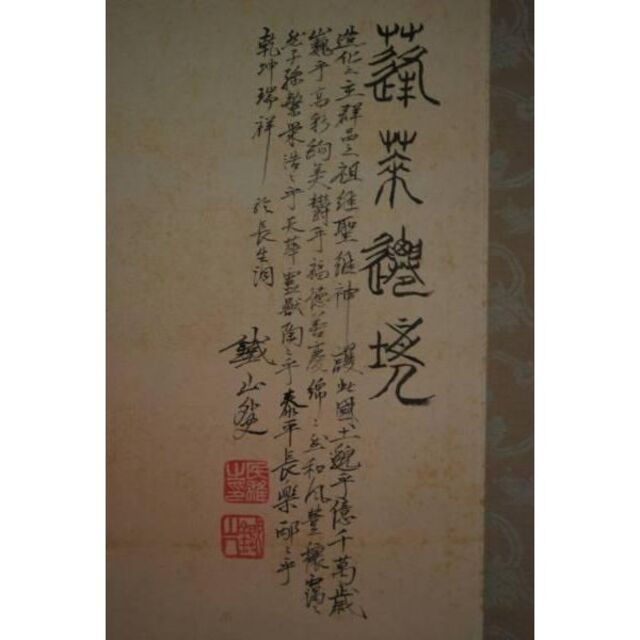 蓬萊遷境
造化之主群品之祖維聖維神護此國土巍乎億千萬歲
巍乎高彩絢美鬱乎福德善慶綿々然和风豊穰靄々
然子孫繁榮浩々乎天華靈獸陶々乎泰平長樂邴々乎
乾坤瑞祥 於長生洞
鐵山叟